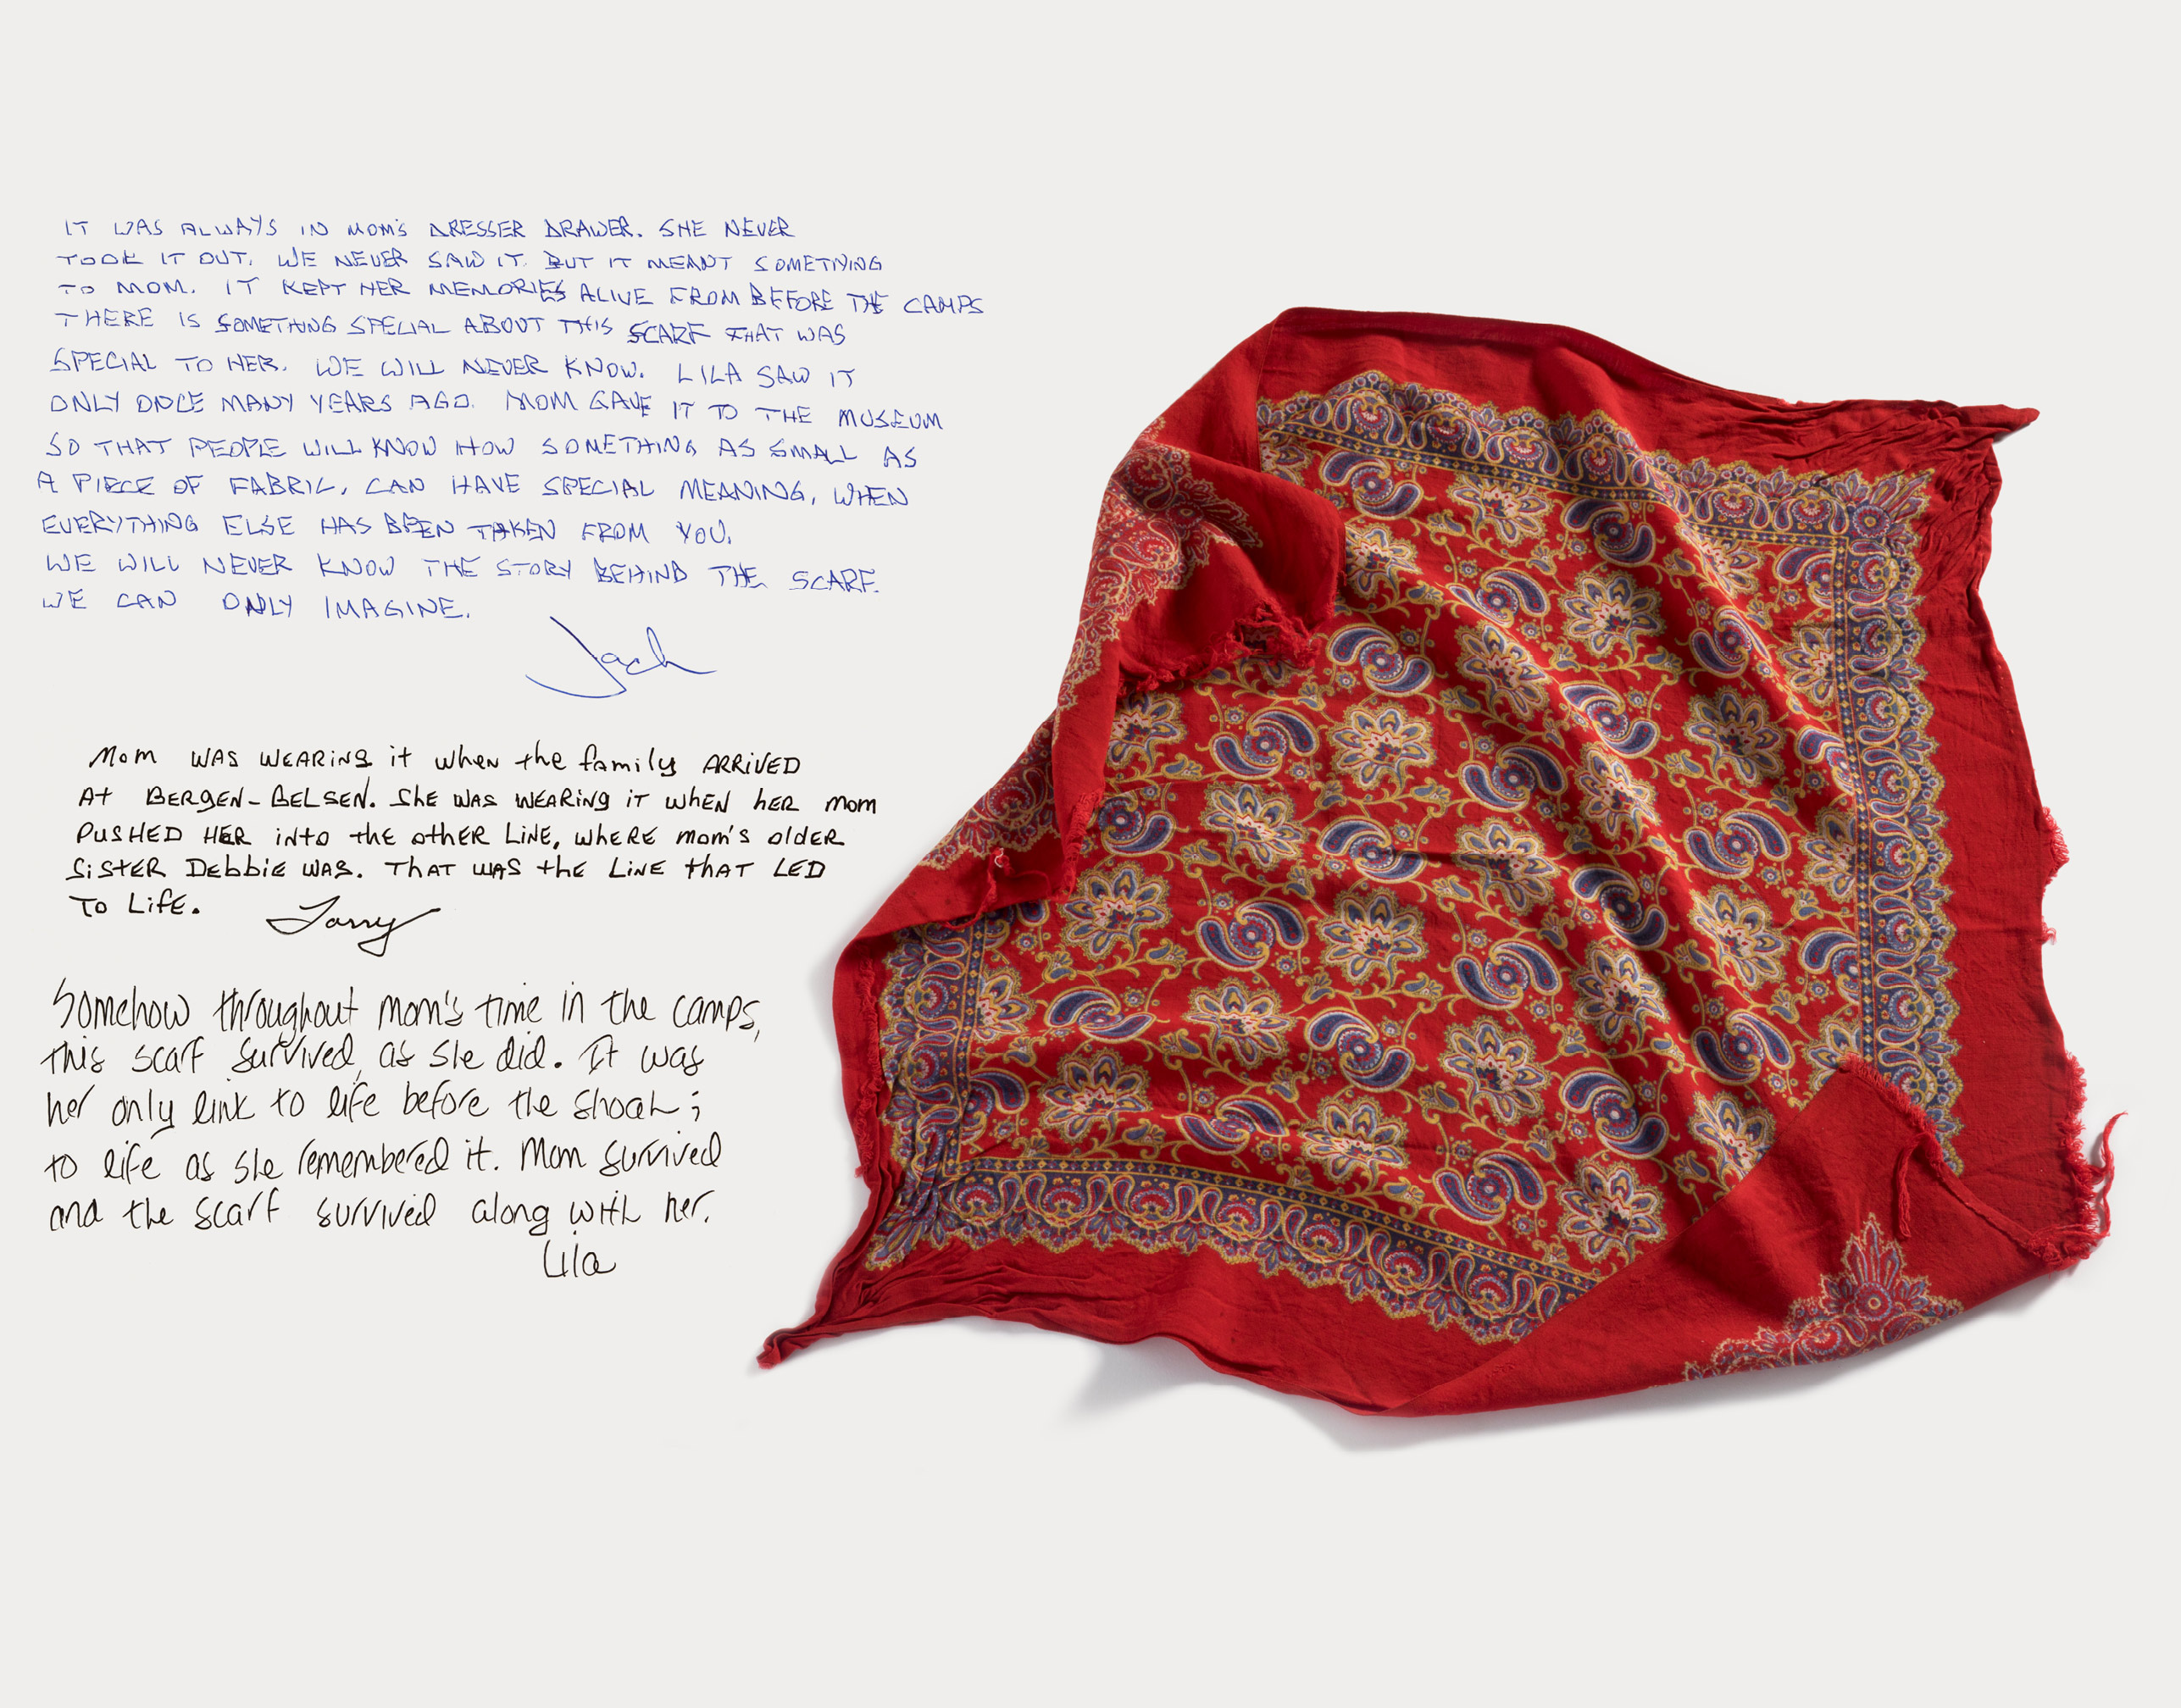 IT WAS ALWAYS IN MOM'S DRESSER DRAWER. SHE NEVER
TOOK IT OUT. WE NEVER SAW IT. BUT IT MEANT SOMETHING
TO MOM. IT KEPT HER MEMORIES ALIVE FROM BEFORE THE CAMPS
THERE IS SOMETHING SPECIAL ABOUT THIS SCARF THAT WAS
SPECIAL TO HER. WE WILL NEVER KNOW. LILA SAW IT
ONLY ONCE MANY YEARS AGO. MOM GAVE IT TO THE MUSEUM
SO THAT PEOPLE WILL KNOW HOW SOMETHING AS SMALL AS
A PIECE OF FABRIC, CAN HAVE SPECIAL MEANING, WHEN
EVERYTHING ELSE HAS BEEN TAKEN FROM YOU.
WE WILL NEVER KNOW THE STORY BEHIND THE SCARF.
WE CAN ONLY IMAGINE.
Jack
Mom WAS WEARING it when the family ARRIVED
At BERGEN-BELSEN. She WAS WEARING IT WHEN her mom
PUSHED HER into the other Line, where mom's older
Sister Debbie was. That was the Line that LED
To Life.
Larry
Somehow throughout mom's time in the camps,
this scarf survived, as she did. It was
her only link to life before the Shoah;
to life as she remembered it. Mom survived
and the scarf survived along with her.
Lila